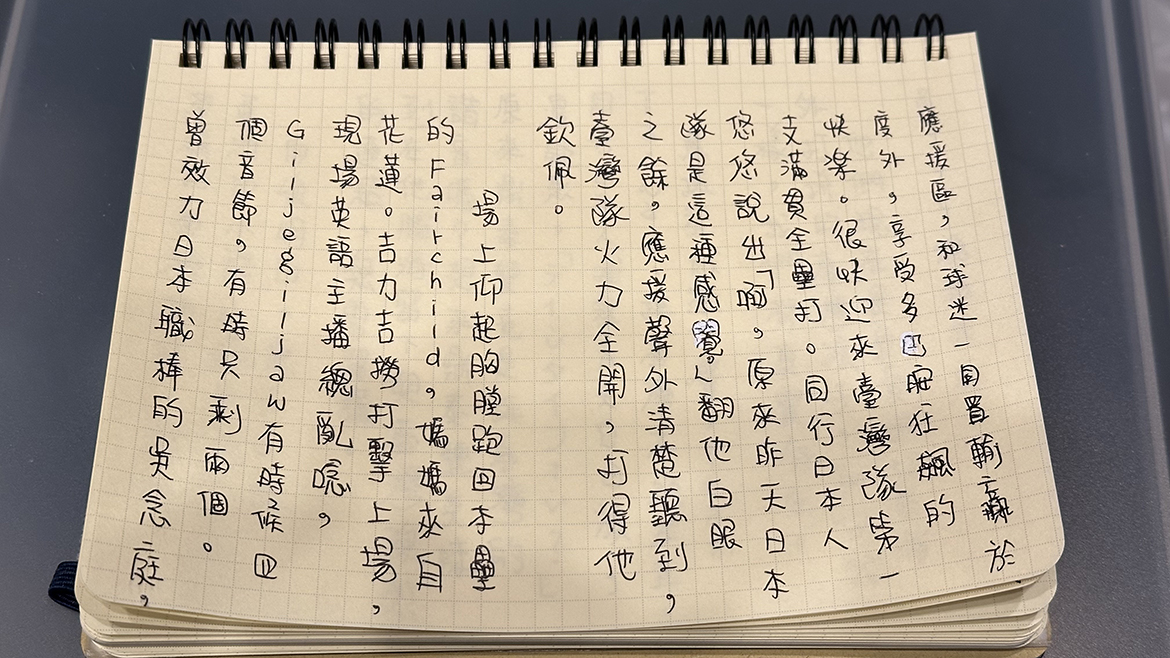 應援區,和球迷一同置輸贏於
度外,享受多巴胺狂飆的
快樂。很快迎來臺灣隊第一
支滿貫全壘打。同行日本人
悠悠說出「啊,原來昨天日本
隊是這種感覺。」翻他白眼
之餘,應援聲外清楚聽到,
臺灣隊火力全開,打得他
欽佩。
場上仰起胸膛跑回本壘
的Fairchild,媽媽來自
花蓮。吉力吉撈打擊上場,
現場英語主播總亂唸,
Giljegiljaw有時候四
個音節,有時只剩兩個。
曾效力日本職棒的吳念庭,